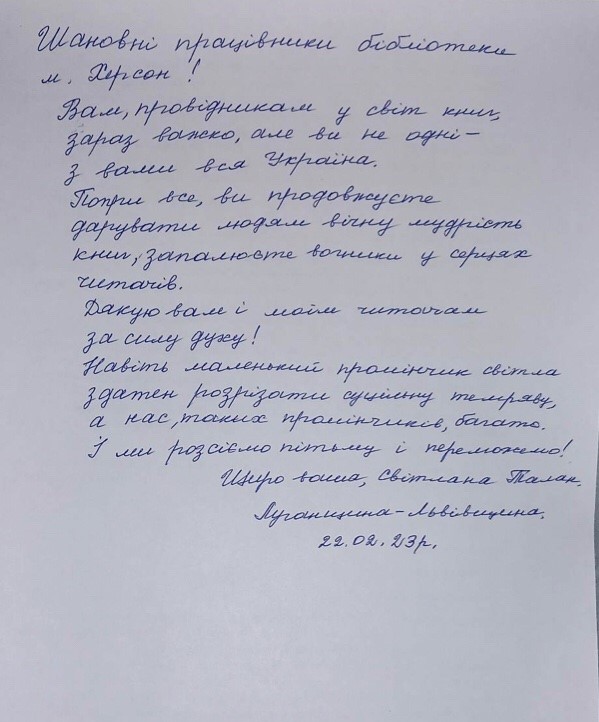 Шановні працівники бібліотеки
м. Херсон!
Вам, провідникам у світ книг,
зараз важко, але ви не одні –
з вами вся Україна.
Попри все, ви продовжуєте
дарувати людям вічну мудрість
книг, запалюєте вогники у серцях
читачів.
Дякую вам і моїм читачам
за силу духу!
Навіть маленький промінчик світла
здатен розрізати суцільну темряву,
а нас, таких промінчиків, багато.
І ми розсіємо пітьму і переможемо!
Щиро ваша, Світлана Талан.
Луганщина-Львівщина.
22.02.23р.